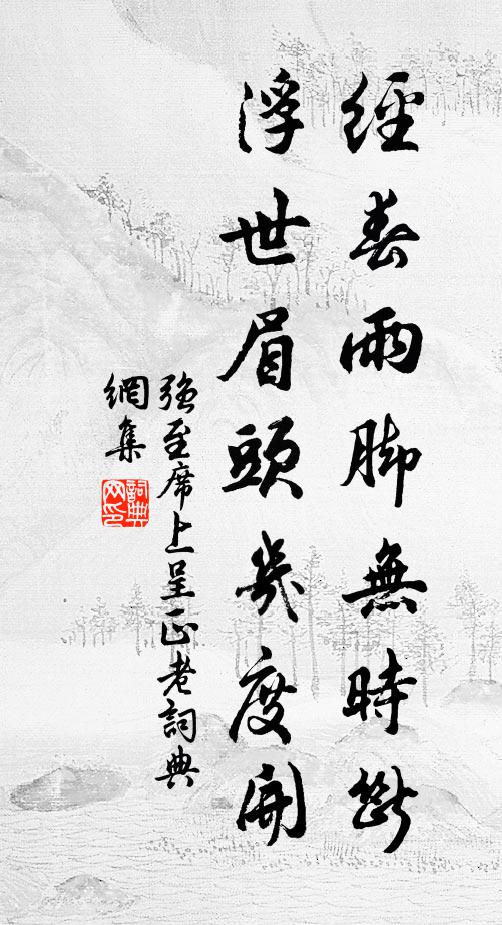 經春雨脚無時斷
浮世眉頭幾度開
強至席上呈正老詞典
網集
詞典
网印